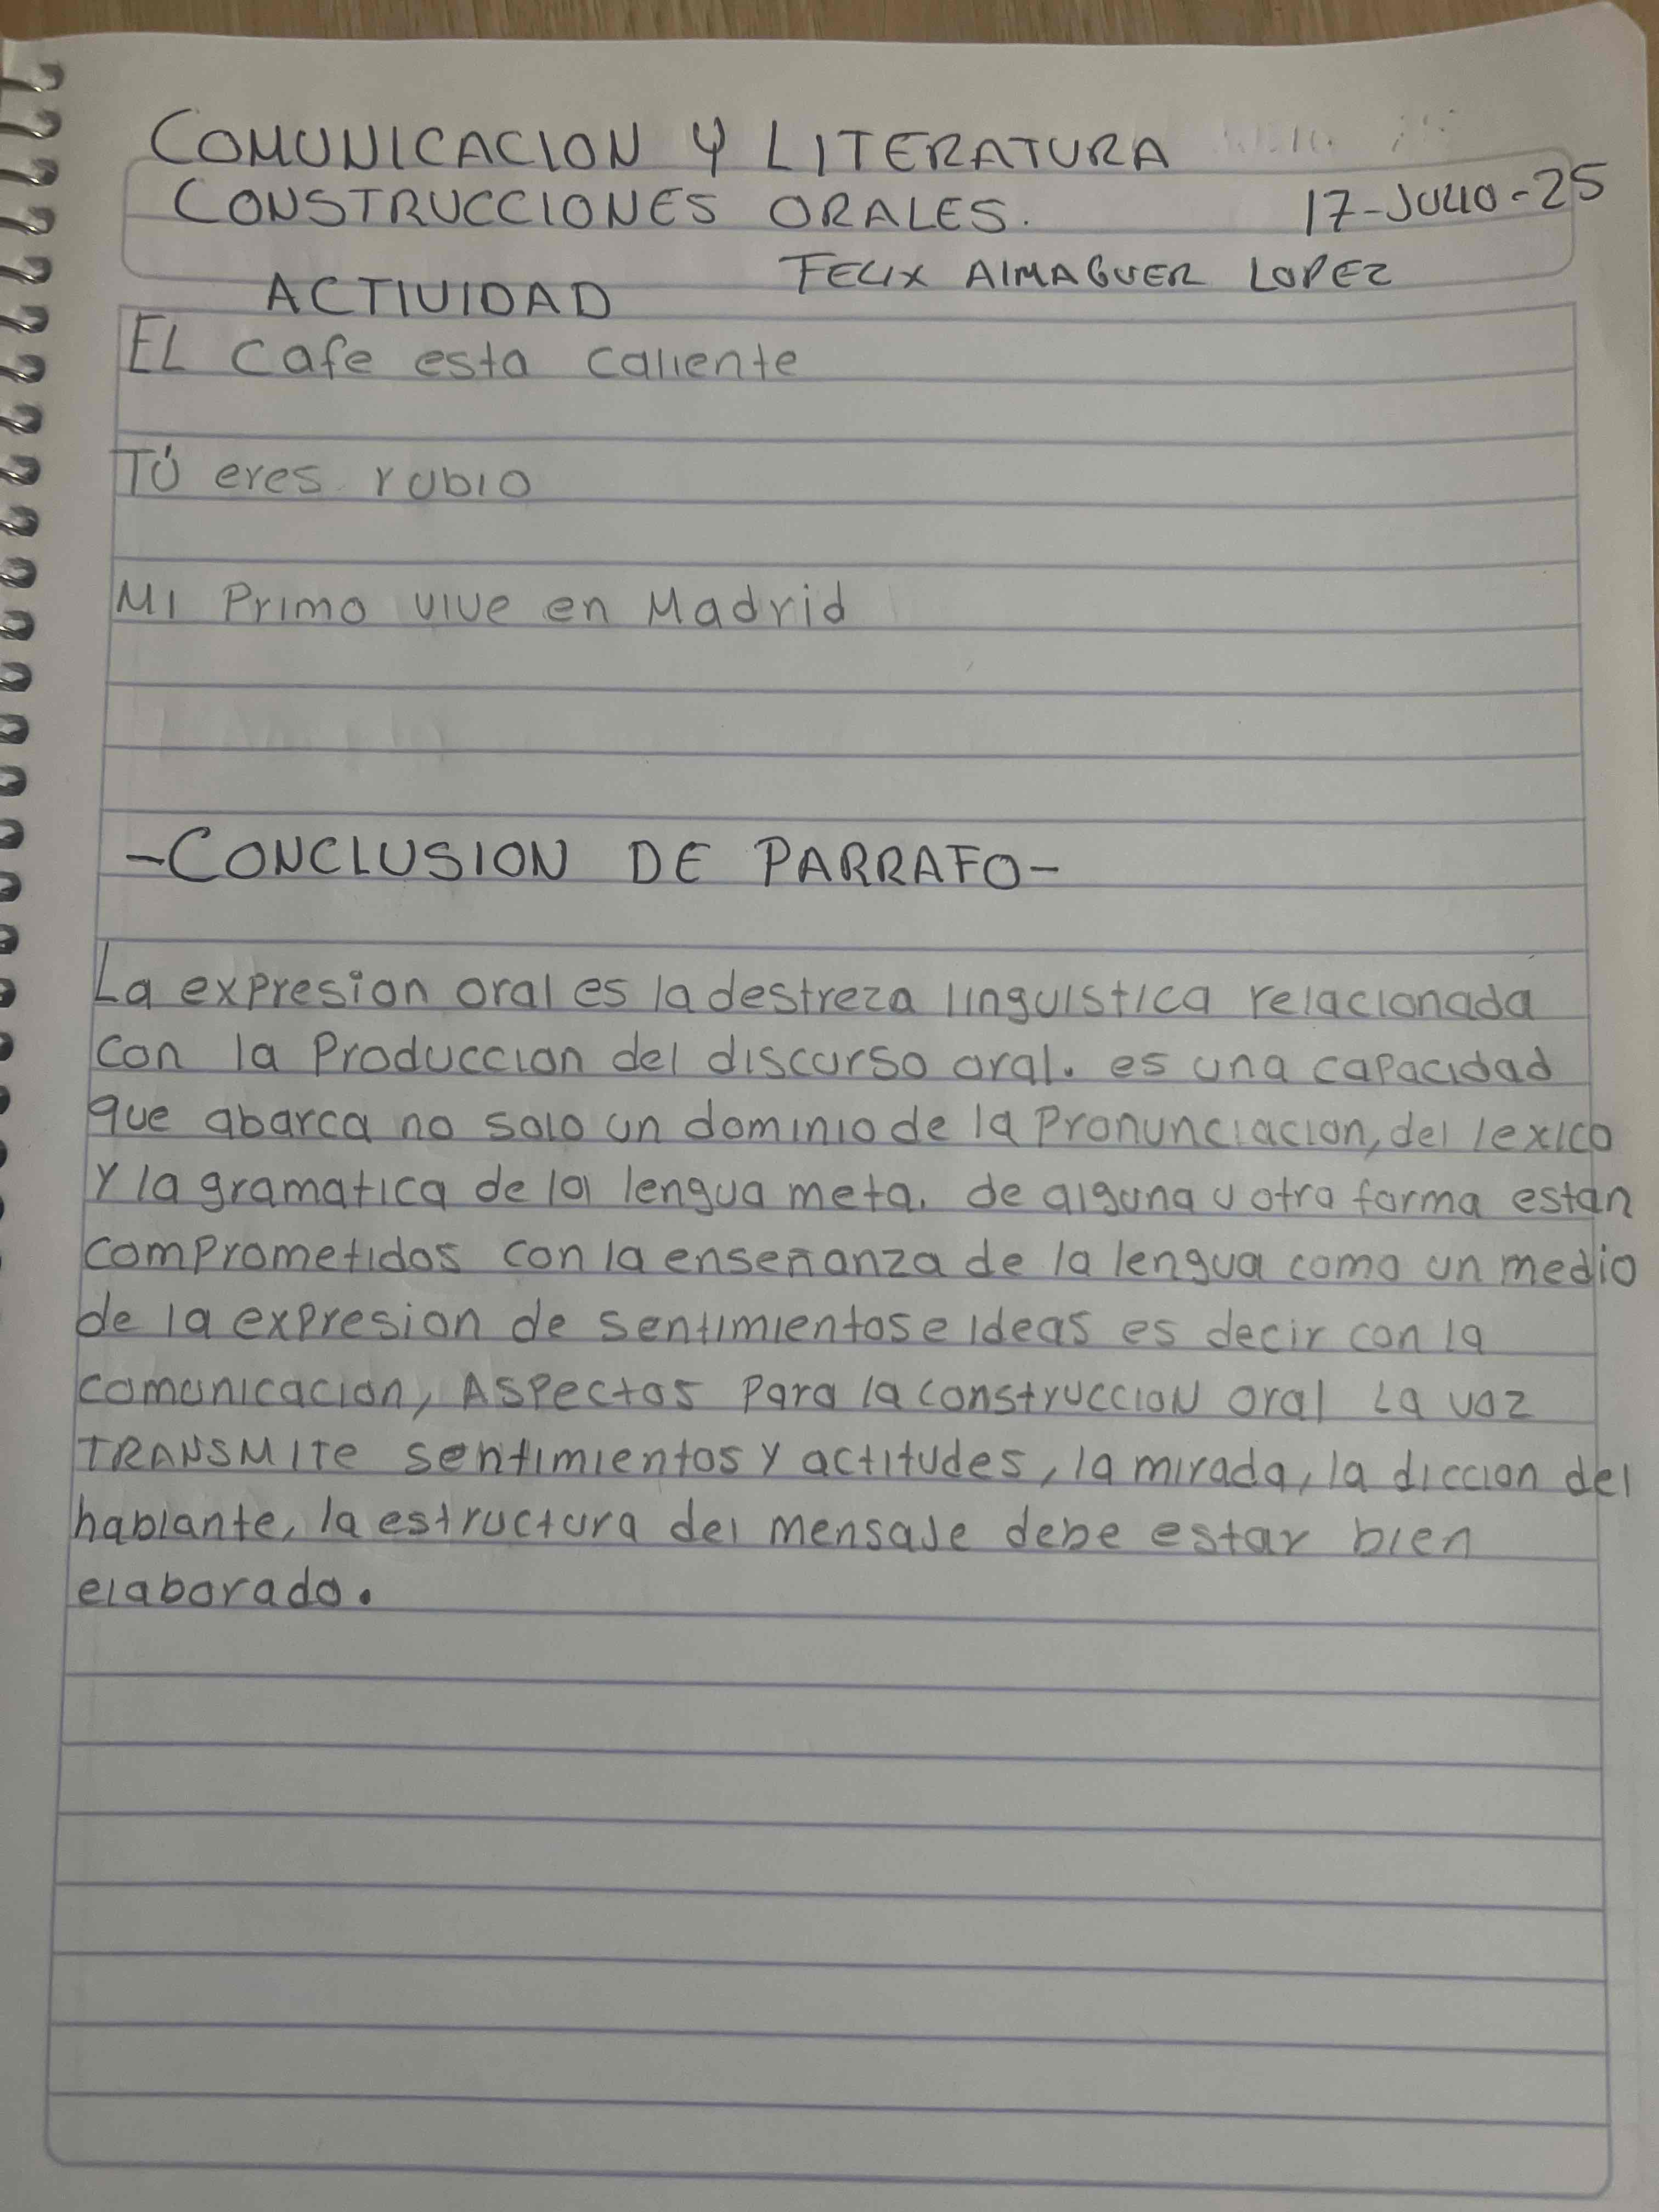 COMUNICACION Y LITERATURA
CONSTRUCCIONES ORALES. 17-JULIO-25
FELIX AlMAGUER LOPEZ
ACTIVIDAD
EL Cafe esta caliente
TÚ eres rubio
Mi Primo vive en Madrid
-CONCLUSION DE PARRAFO-
La expresion oral es la destreza linguistica relacionada
con la Produccion del discurso oral. es una capacidad
que abarca no solo un dominio de la Pronunciacion, del lexico
Y la gramatica de la lengua meta. de alguna u otra forma estan
comprometidos con la enseñanza de la lengua como un medio
de la expresion de sentimientos e ideas es decir con la
comunicacion, Aspectos Para la construccioN oral La voz
TRANSMITe sentimientos y actitudes, la mirada, la diccion del
hablante, la estructura del mensaje debe estar bien
elaborado.